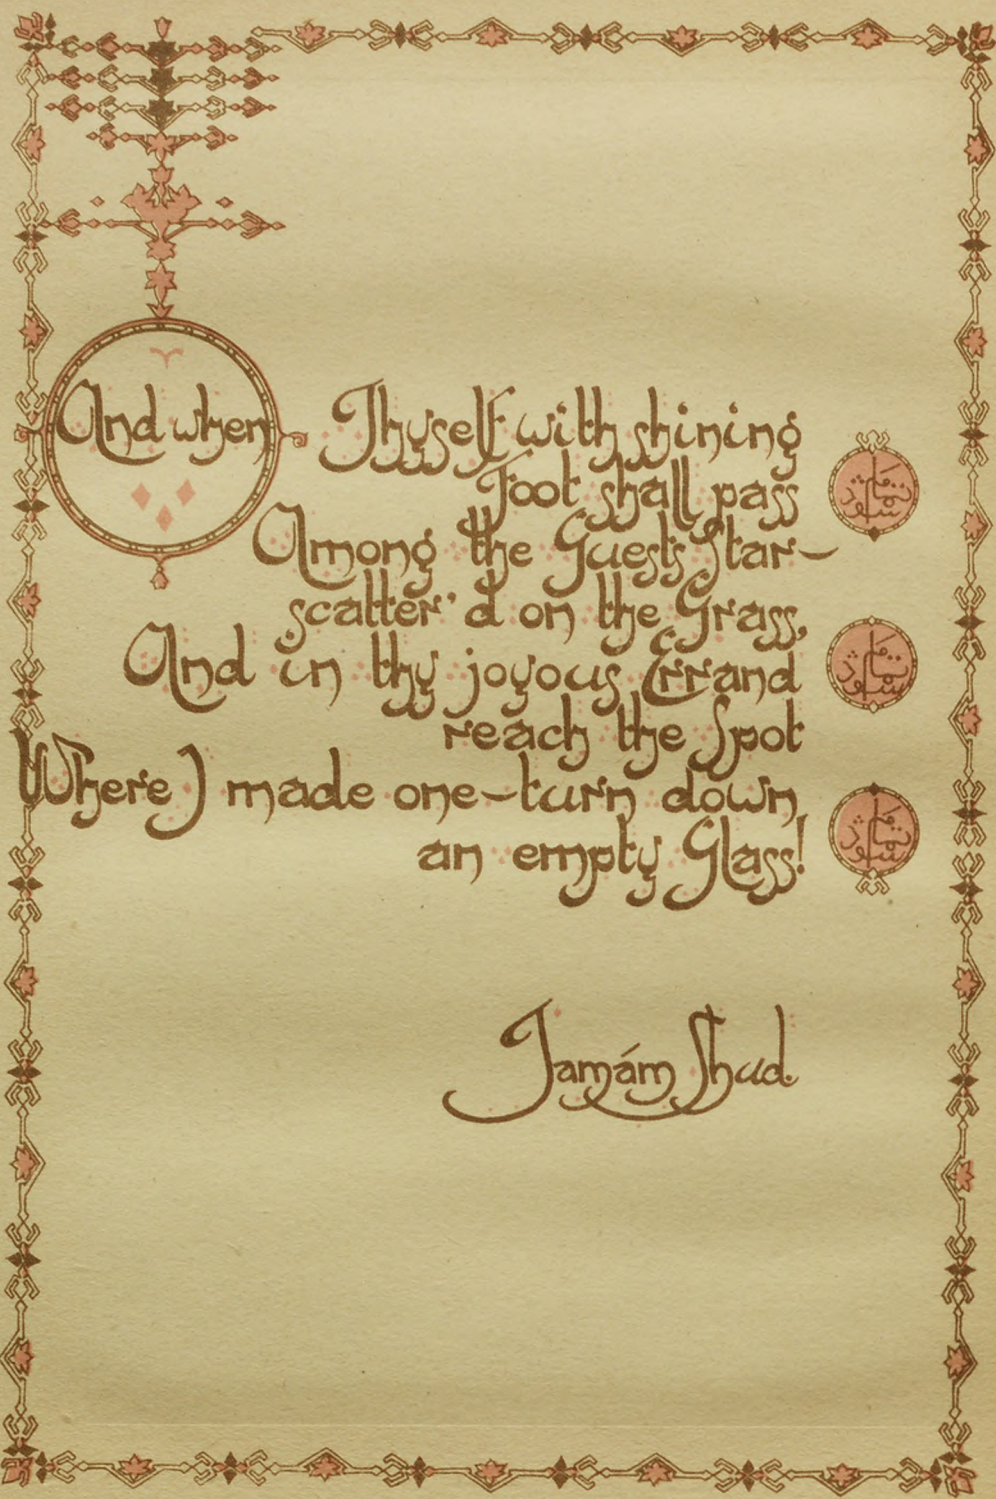 And when Thyself with shining
Foot shall pass
Among the Guests Star-
scatter'd on the Grass,
And in thy joyous Errand
reach the Spot
Where I made one-turn down
an empty Glass!
Tamám Shud.